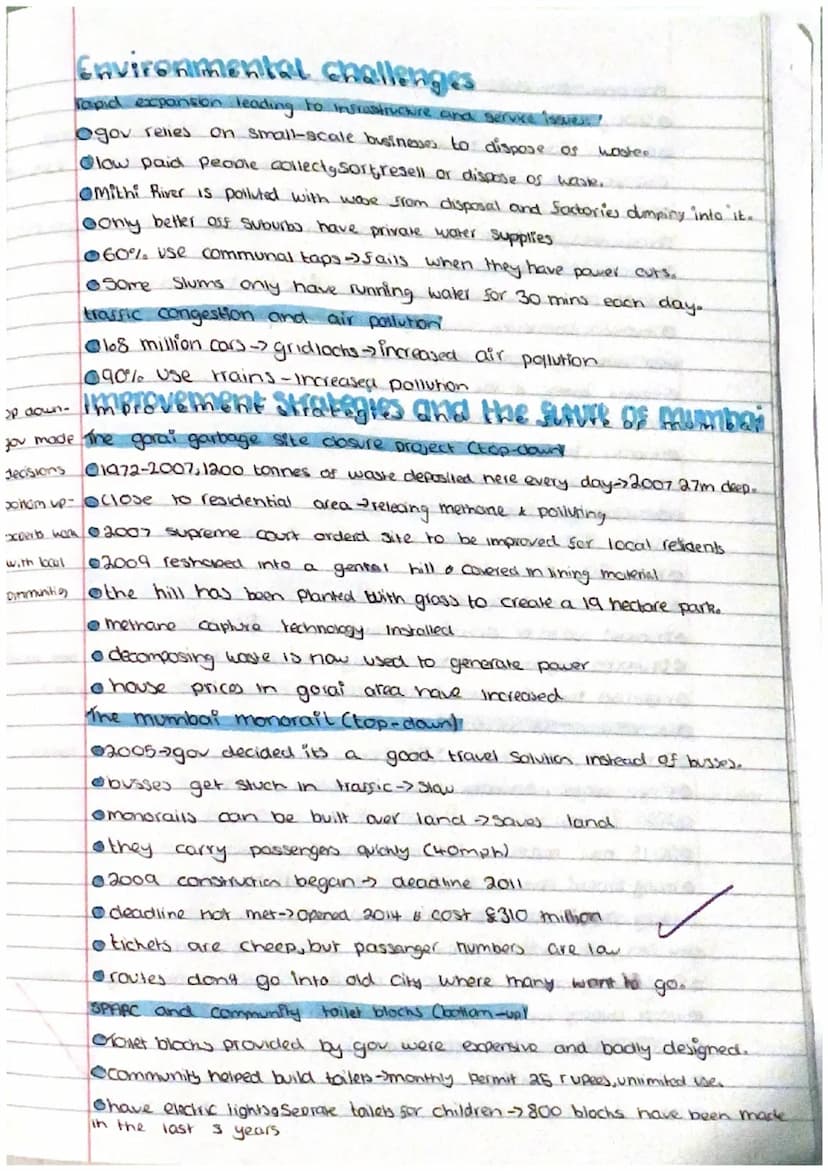 Environmental challenges
rapid expansion leading to infrastructure and service issues!
gov relies on small-scale businesses to dispose of waste.
low paid people collect, sort, resell or dispose of waste.
Mithi River is polluted with wase from disposal and factories dumping into it.
Only better off suburbs have private water supplies
60% use communal taps → fails when they have power cuts.
Some slums only have running water for 30 mins each day.
traffic congestion and air pollution
1o8 million cars → gridlocks → increased air pollution
90% use trains - increased pollution
op down-
gov made
decisions
ottom up-
experts work
with local
ommunities
improvement strategies and the future of mumbai
The gorai garbage site closure project (top-down)
1972-2007, 1200 tonnes of waste deposited here every day → 2007 27m deep.
close to residential area → releasing methane & polluting
2007 supreme court orderd site to be improved for local residents
2009 reshaped into a gentel hill & covered in lining material
the hill has been planted with grass to create a 19 hectare park.
methane capture technology installed
decomposing waste is now used to generate power
house prices in gorai area have increased
The mumbai monorail (top-down)
2005 → gov decided its a good travel solution instead of busses.
busses get stuck in traffic → slow
monorails can be built over land → saves land
they carry passengers quickly (40mph)
2009 construction began → deadline 2011
deadline not met → opened 2014 & cost £310 million
tickets are cheep, but passanger numbers are low
routes dont go into old city where many want to go.
SPARC and community toilet blocks (bottom-up)
toilet blocks provided by gov were expensive and badly designed.
community helped build toilets → monthly permit 25 rupees, unlimited use.
have electric lights, seprate toilets for children → 800 blocks have been made
in the last 3 years